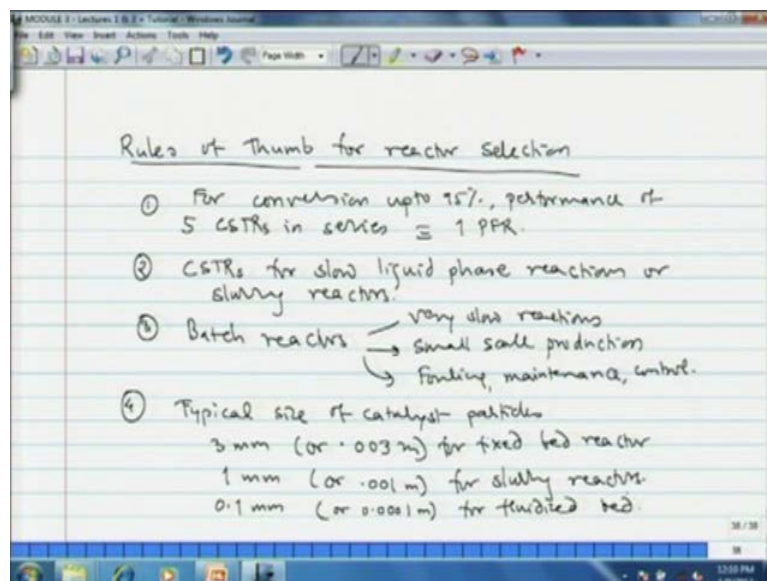 MODULE 3 - Lectures 1 & 3 + Tutorial - Windows Journal
File Edit View Insert Actions Tools Help
Page Width
Rules of Thumb for reactor selection
① For conversion upto 95%, performance of
5 CSTRs in series ≡ 1 PFR.
② CSTRs for slow liquid phase reactions or
slurry reactors.
③ Batch reactors very slow reactions
→ small scale production
Fouling, maintenance, control.
④ Typical size of catalyst particles
3 mm (or .003 m) for fixed bed reactor
1 mm (or .001 m) for slurry reactors.
0.1 mm (or 0.0001 m) for fluidized bed.
38 / 38
38
12:50 PM